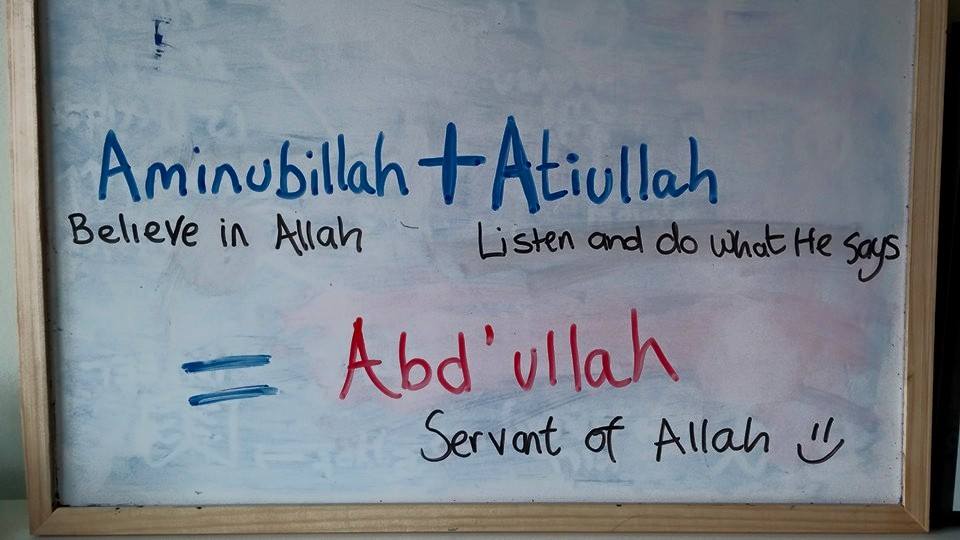 Aminubillah + Atiullah
Believe in Allah Listen and do what He says
= Abd'ullah
Servant of Allah